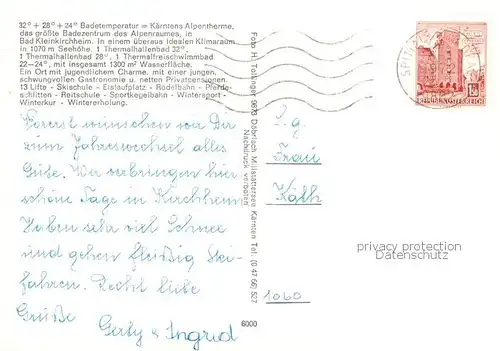 32° + 28° + 24° Badetemperatur = Kärntens Alpentherme,
das größte Badezentrum des Alpenraumes, in
Bad Kleinkirchheim. In einem überaus idealen Klimaraum
in 1070 m Seehöhe. 1 Thermalhallenbad 32°,
1 Thermalhallenbad 28°, 1 Thermalfreischwimmbad
22—24°, mit insgesamt 1300 m² Wasserfläche.
Ein Ort mit jugendlichem Charme, mit einer jungen,
schwungvollen Gastronomie u. netten Privatpensionen.
13 Lifte - Skischule - Eislaufplatz - Rodelbahn - Pferde-
schlitten - Reitschule - Sportkegelbahn - Wintersport -
Winterkur - Wintererholung.
Vorerst wünschen wir Dir
zum Jahreswechsel alles
Gute. Wir verbringen hier
schöne Tage in Kirchheim
Haben sehr viel Schnee
und gehen fleißig Ski-
fahren. Recht liebe
Grüße Gerty & Ingrid
6000
Nachdruck verboten
REPUBLIK ÖSTERREICH
S.g.
Frau
Käth
1060
privacy protection
DELCAMPE